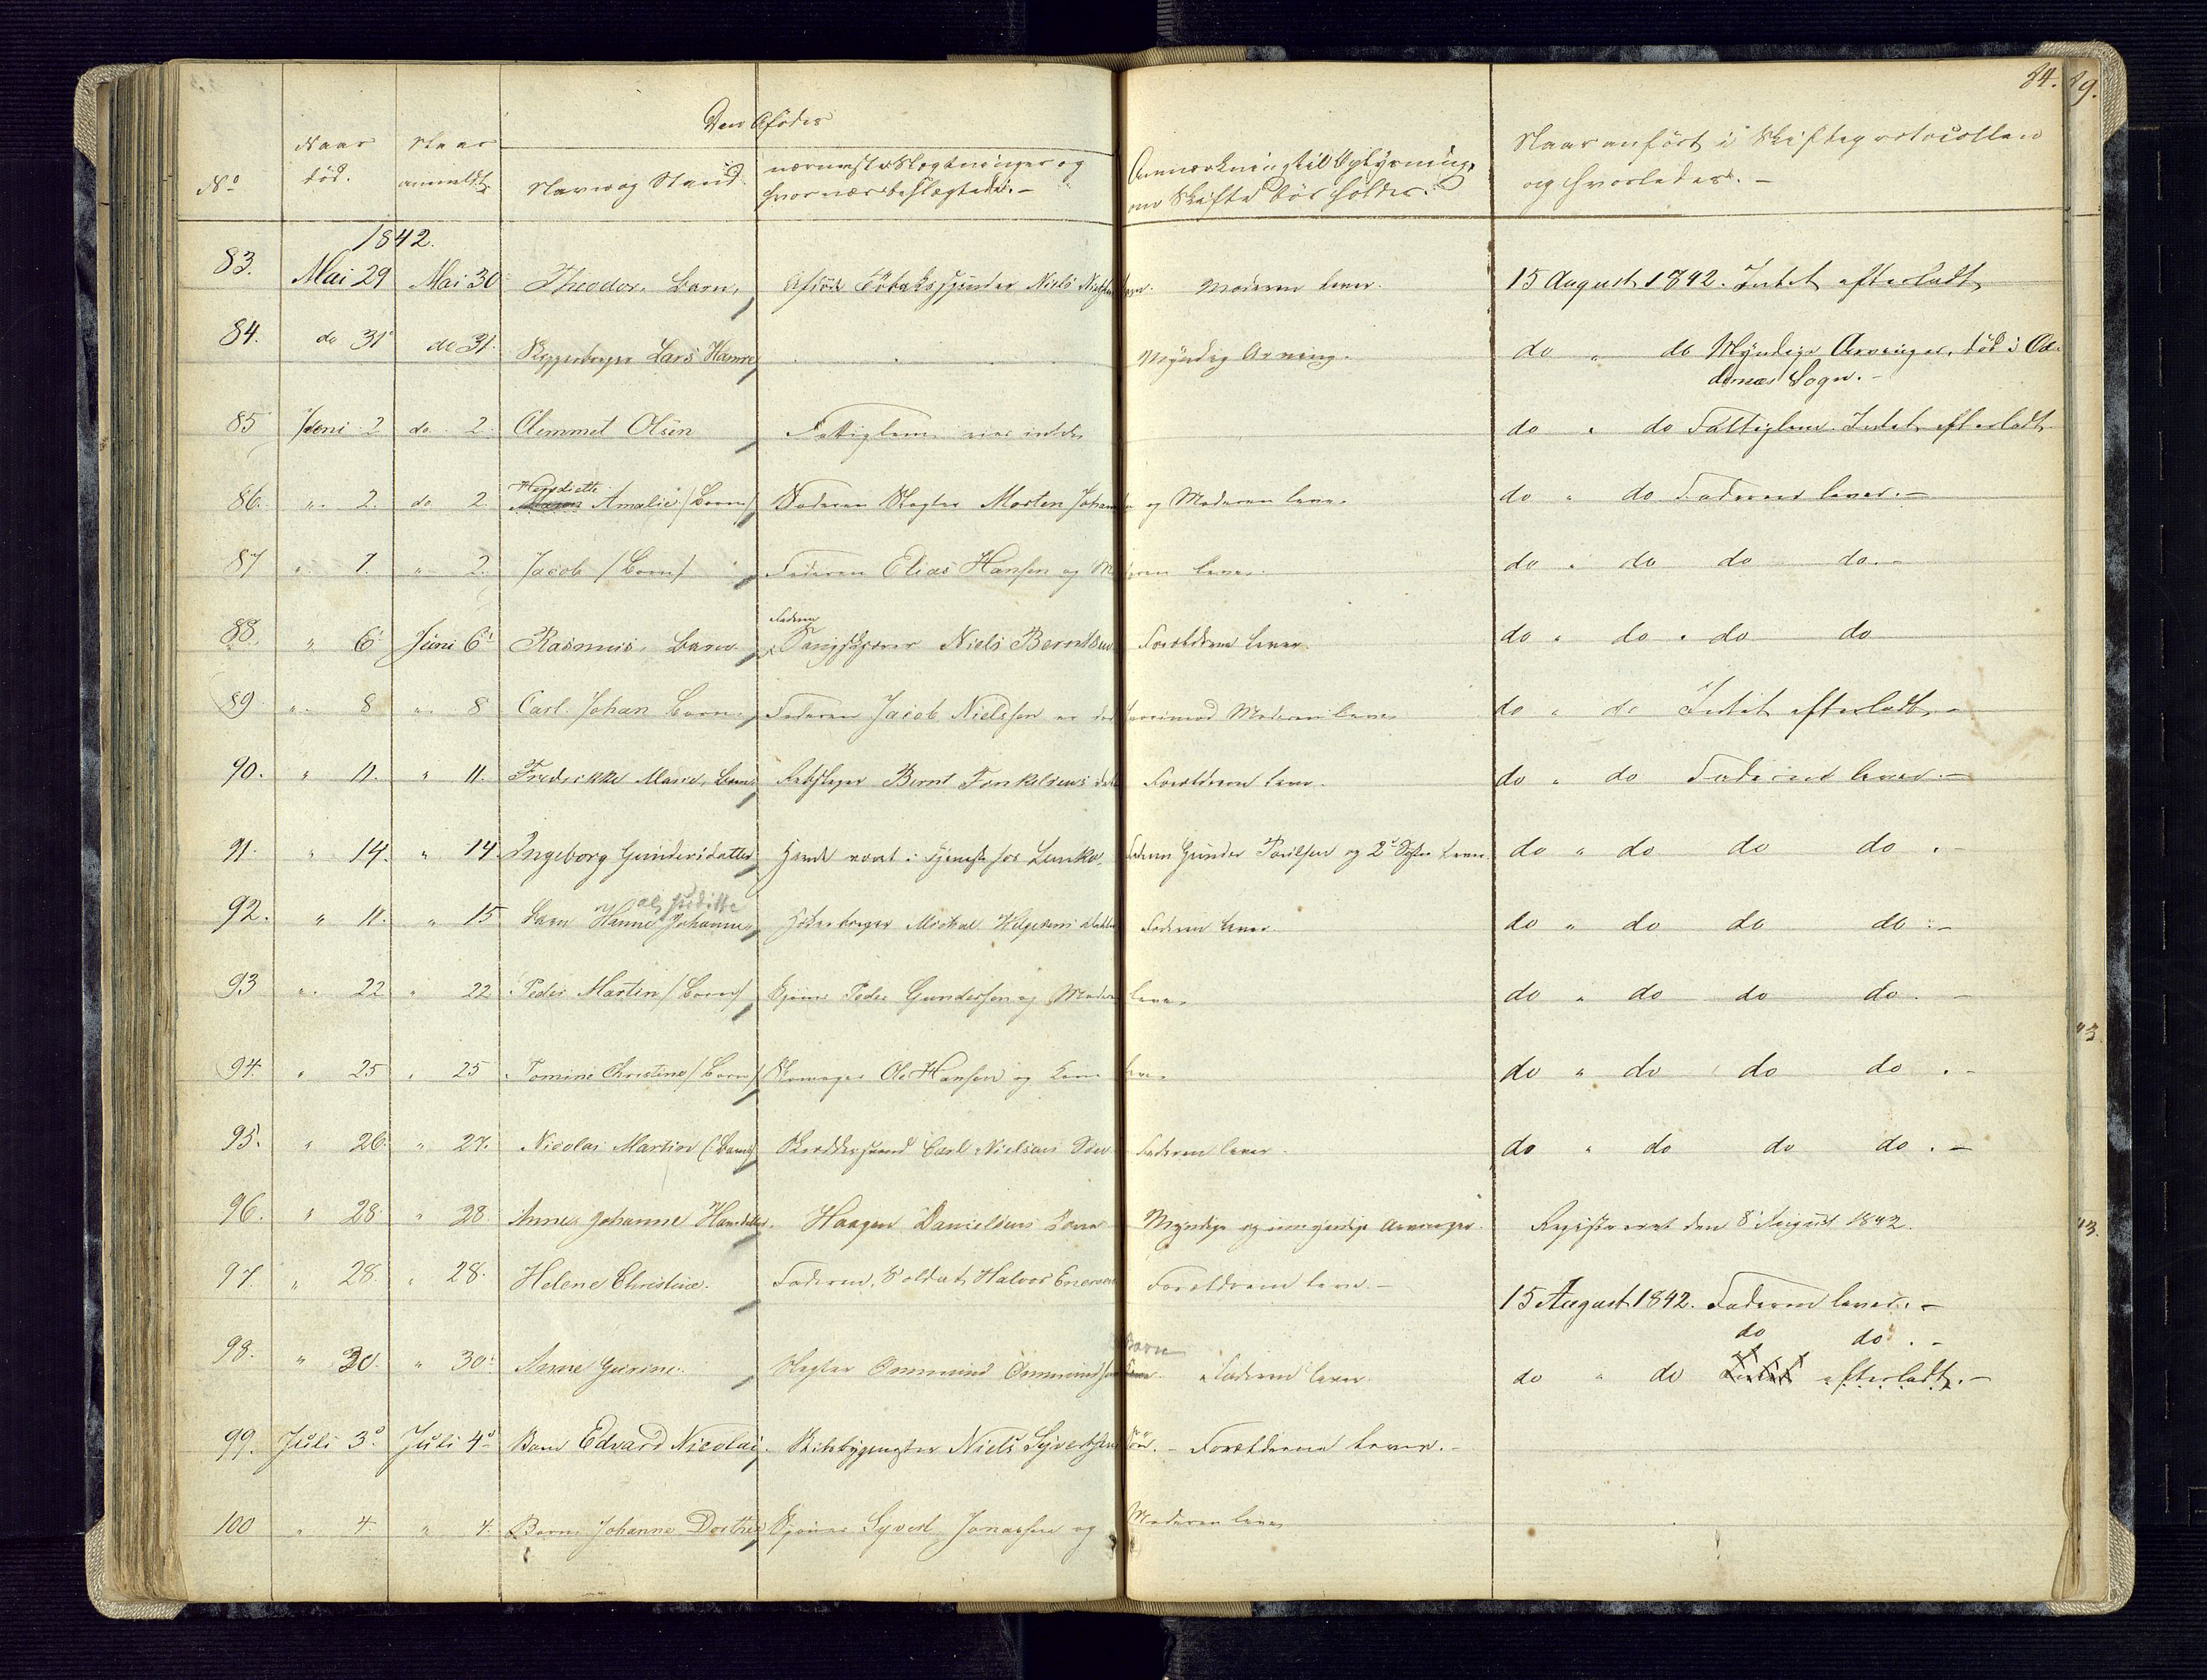 84.
Den Afdødes
No
Naar død.
Naar anmeldt
Navn og Stand
nærmeste Slægtninger og hvor nær beslægtede. —
Anmærkning til Oplysning, om Skifte bør holdes.
Naar anført i Skifteprotocollen og hvorledes. —
1842.
83. Mai 29 Mai 30 Theodor, Barn, Afdøde Niels Moderen lever. 15 August 1842. Intet efterladt
84. do 31 do 31. Skypperborger Lars Hamre Myndig Arving. do " do Myndige Arvinger, død i Od-
dernes Sogn. —
85 Juni 2 do 2. Clemmet Olsen Fattiglem eier intet do " do Fattiglem. Intet efterladt
Henriette
86. " 2. do 2 Amalie /Barn/ Faderen Slagter Morten Johansen og Moderen lever do " do Faderen lever. —
87 " 1. " 2. Jacob /Barn/ Faderen Elias Hansen og Moderen lever do " do do do. —
Faderen
88. " 6 Juni 6 Rasmus, Barn Niels Berntsen Forældrene lever. do " do " do do
89 " 8 " 8 Carl Johan Barn Faderen Jacob Nielssen er død hvorimod Moderen lever do " do Intet efterladt. —
90. " 11. " 11. Fredrikke Marie, Barn Rebslager Bernt Forældrene lever. do " do Faderen lever. —
91. " 14. " 14 Ingeborg Gundersdatter tjeneste hos Faderen Gunder Poulsen og 2 Søstre lever do " do do do . —
92. " 11. " 15 Barn Hanne Johanne Michael Helgesens Datter Faderen lever. do " do do do . —
93 " 22 " 22 Peder Martin /Barn/ Peder Gundersen og Moderen lever do " do do do . —
94. " 25 " 25 Tomine Christine /Barn/ Skomager Ole Hansen og Kone lever do " do do do . —
95. " 26 " 27. Nicolai Martin (Barn) Carl Nielsens Søn Faderen lever. do " do do do . —
96. " 28 " 28 Anne Johanne Hansdatter. Haagen Danielsens Kone Myndige og umyndige Arvinger. Registreret den 8 August 1842.
97. " 28. " 28. Helene Christine. Faderen, Soldat Halvor Forældrene lever. — 15 August 1842. Faderen lever. —
do do . —
Barn
98. " 30. " 30 Anne Gurine. Slagter Ommund Ommundsens Faderen lever do " do Intet efterladt. —
99. Juli 3 Juli 4 Barn Edvard Nicolai. Skibsbygmester Niels Syvertsens Søn. — Forældrene lever. —
100 " 4 " 4. Barn Johanne Dorthe Syvert Jonassen og Moderen lever